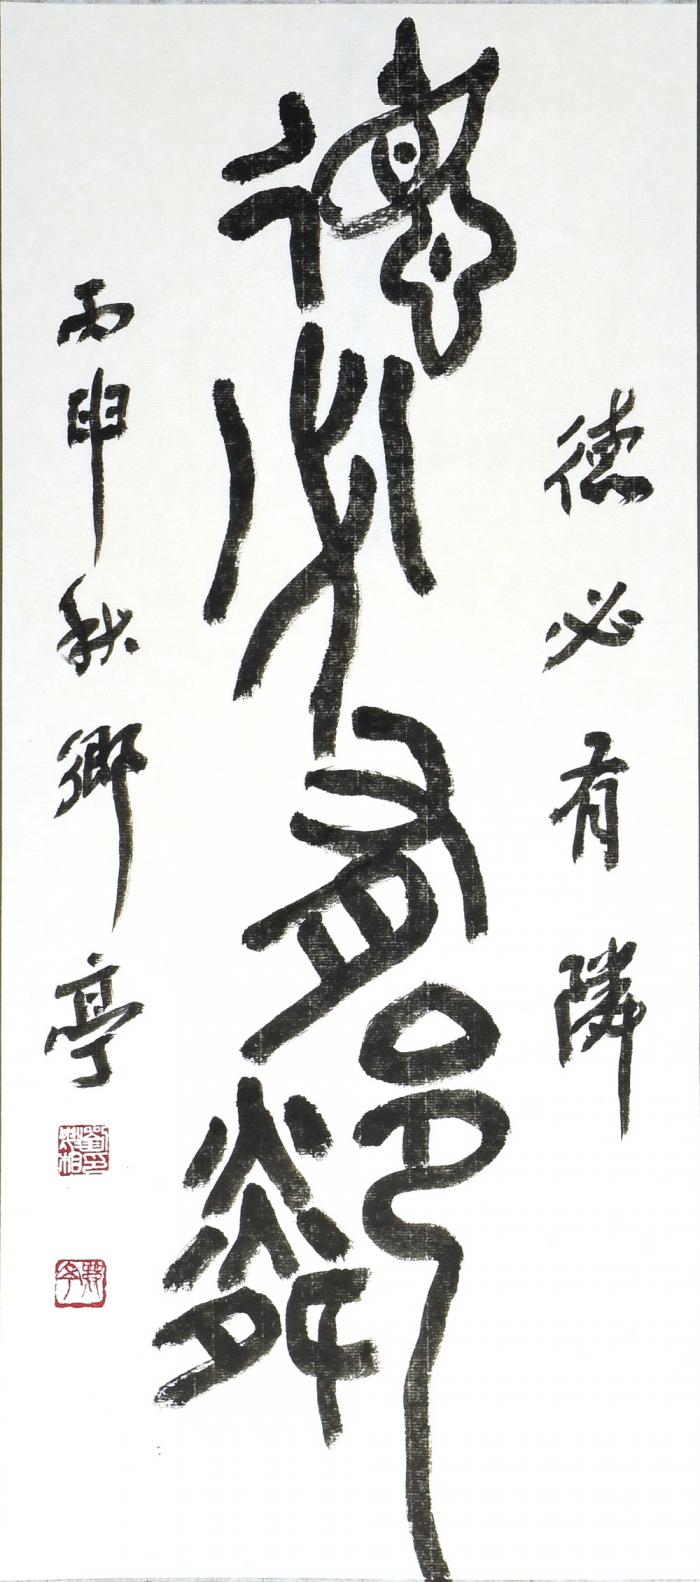 德必有隣
德必有鄰
丙申秋鄉亭